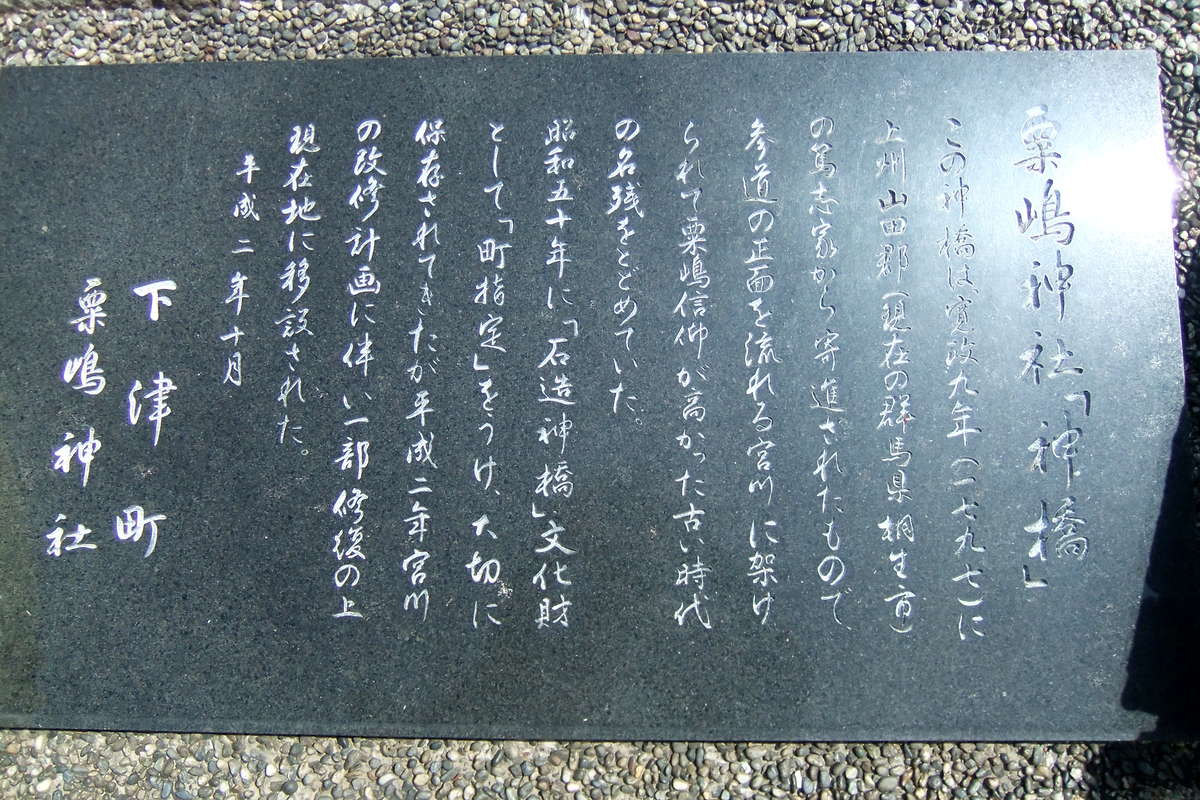 粟嶋神社「神橋」
この神橋は寛政九年(一七九七)に
上州山田郡(現在の群馬県桐生市)
の篤志家から寄進されたもので、
参道の正面を流れる宮川に架け
られて粟嶋信仰が高かった古い時代
の名残をとどめていた。
昭和五十年に「石造神橋」文化財
として「町指定」をうけ、大切に
保存されてきたが平成二年宮川
の改修計画に伴い一部修復の上
現在地に移設された。
平成二年十月
下津町
粟嶋神社